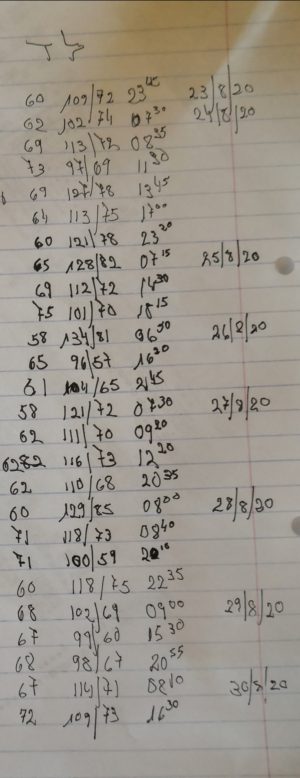 60 109/72 23⁴⁵ 23/8/20
62 102/74 07³⁰ 24/8/20
69 113/72 08³⁵
73 97/69 11³⁰
69 127/78 13⁴⁵
64 113/75 17⁰⁰
60 121/78 23²⁰
65 128/82 07¹⁵ 25/8/20
69 112/72 14³⁰
75 101/70 18¹⁵
58 134/81 06³⁰ 26/8/20
65 96/57 16³⁰
61 104/65 21⁴⁵
58 121/72 07³⁰ 27/8/20
62 111/70 09²⁰
62 116/73 12²⁰
62 110/68 20³⁵
60 129/85 08⁰⁰ 28/8/20
71 118/73 08⁴⁰
71 100/59
60 118/75 22³⁵
68 102/69 09⁰⁰ 29/8/20
67 99/60 15³⁰
68 98/67 20⁵⁵
67 114/71 08¹⁰ 30/8/20
72 109/73 16³⁰